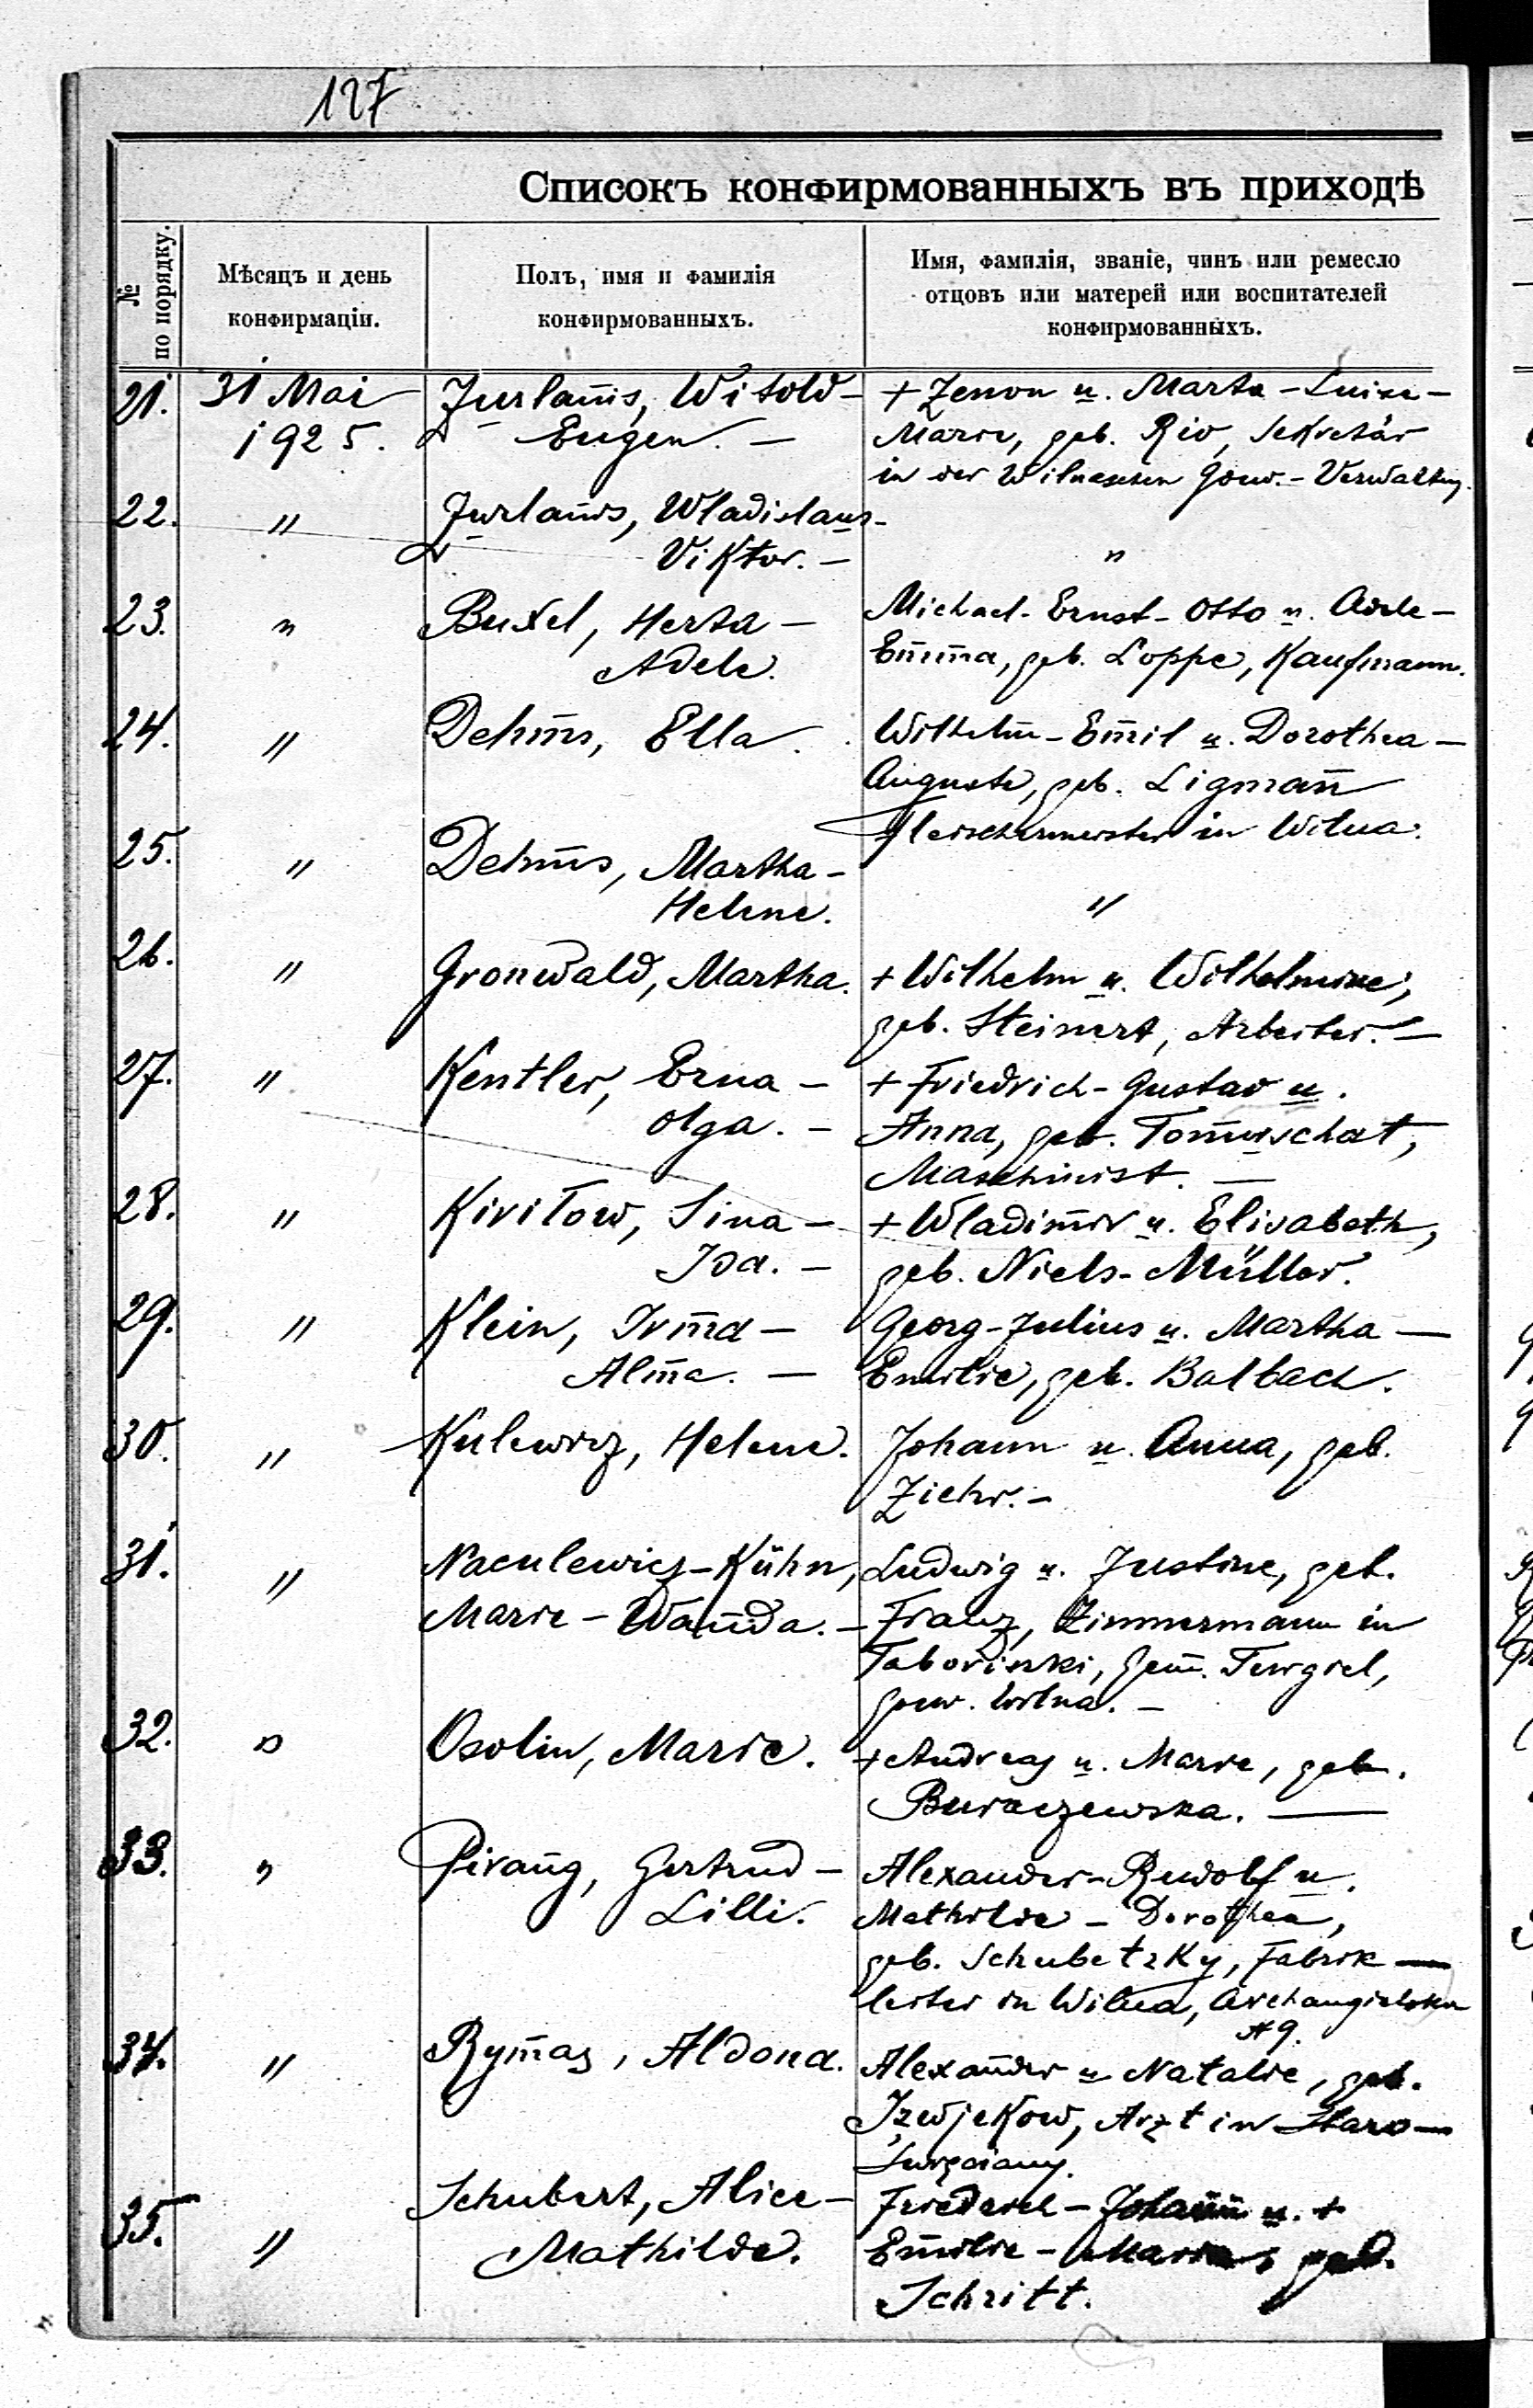 127
Списокъ конфирмованныхъ въ приходѣ
№ по порядку.
Мѣсяцъ и день
конфирмаціи.
Полъ, имя и фамилія
конфирмованныхъ.
Имя, фамилія, званіе, чинъ или ремесло
отцовъ или матерей или воспитателей
конфирмованныхъ.
21. 31 Mai
1925.
Jurlanis, Witold-
Eugen. —
+ Zenon u. Marta-Luise-
Marie, geb. Rio, Sekretär
in der Wilnaschen Gouv.-Verwaltg.
22. "
Jurlanis, Wladislaus-
Viktor. —
"
23. "
Buxel, Herta —
Adele.
Michael-Ernst-Otto u. Adele-
Em̄ma, geb. Loppe, Kaufmann.
24. "
Dehm̄s, Ella.
Wilhelm̄-Em̄il u. Dorothea-
Auguste, geb. Ligman̄
Fleischermeister in Wilna.
25. "
Dehm̄s, Martha-
Helene.
"
26. "
Gronwald, Martha.
+ Wilhelm u. Wilhelmine,
geb. Steinert, Arbeiter. —
27. "
Kentler, Erna —
Olga. —
+ Friedrich-Gustav u.
Anna, geb. Tom̄uschat,
Maschinist. —
28. "
Kirilow, Sina —
Ida. —
+ Wladim̄ir u. Elisabeth,
geb. Niels-Müller.
29. "
Klein, Irm̄a —
Alm̄a. —
Georg-Julius u. Martha —
Emilie, geb. Balbach.
30. "
Kulewicz, Helene.
Johann u. Anna, geb.
Ziehr. —
31. "
Naculewicz-Kühn,
Marie-Wan̄da. —
Ludwig u. Justine, geb.
Franz, Zimmermann in
Taboriszki, Gem̄. Turgiel,
Gouv. Wilna. —
32. "
Osolin, Marie.
+ Andreas u. Marie, geb.
Buraczewska. —
33. "
Piran̄g, Gertrud —
Lilli.
Alexander-Rudolf u.
Mathilde-Dorothea,
geb. Schubetzky, Fabrik —
leiter in Wilna, Archangielska
№ 9.
34. "
Rym̄as, Aldona.
Alexan̄der u. Natalie, geb.
Izwjekow, Arzt in Staro —
35. "
Schubert, Alice —
Mathilde.
Friedrich-Johan̄n u. +
Em̄ilie-Marie, geb.
Schritt.